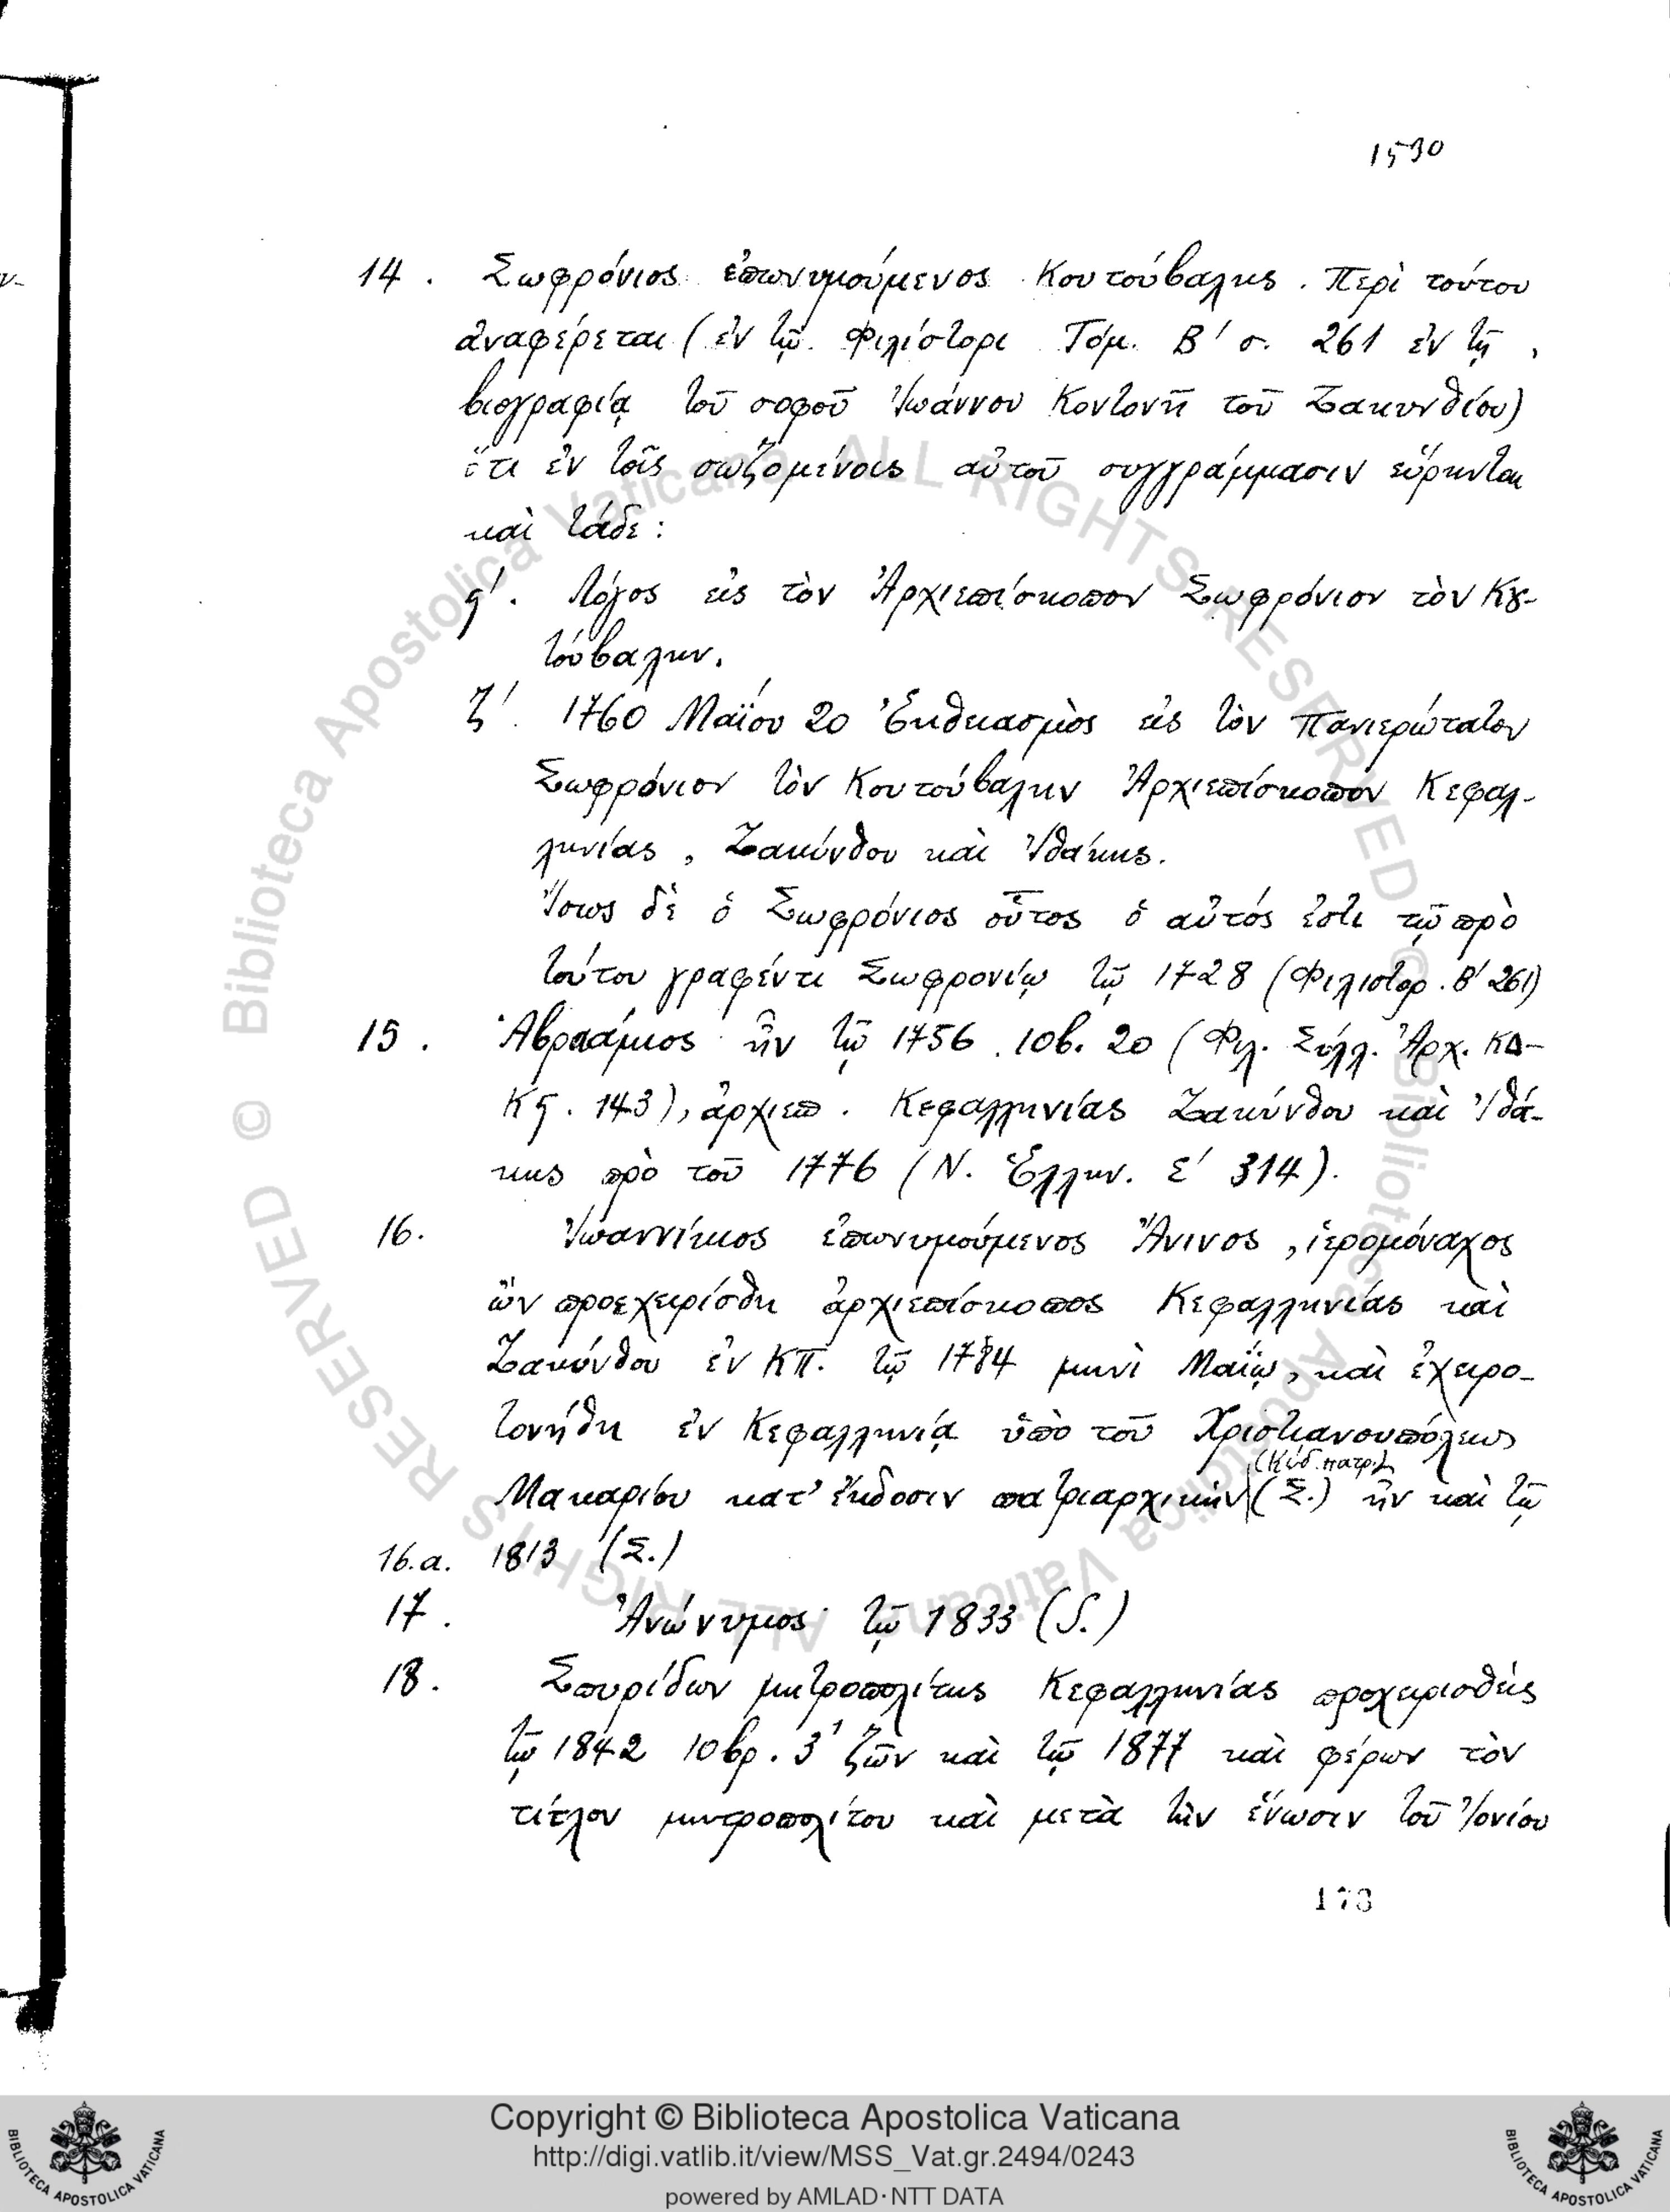 1530
14. Σωφρόνιος ἐπωνυμούμενος Κουτούβαλης. Περὶ τούτου
ἀναφέρεται (ἐν τῷ Φιλίστορι Τόμ. Β' σ. 261 ἐν τῇ
βιογραφίᾳ τοῦ σοφοῦ Ἰωάννου Κοντονῆ τοῦ Ζακυνθίου)
ὅτι ἐν τοῖς σωζομένοις αὐτοῦ συγγράμμασιν εὕρηνται
καὶ τάδε:
ϛ'. Λόγος εἰς τὸν Ἀρχιεπίσκοπον Σωφρόνιον τὸν Κȣ-
τούβαλην.
ζ'. 1760 Μαΐου 20 Ἐκθειασμὸς εἰς τὸν Πανιερώτατον
Σωφρόνιον τὸν Κουτούβαλην Ἀρχιεπίσκοπον Κεφαλ-
ληνίας, Ζακύνθου καὶ Ἰθάκης.
Ἴσως δὲ ὁ Σωφρόνιος οὗτος ὁ αὐτός ἐστι τῷ πρὸ
τούτου γραφέντι Σωφρονίῳ τῷ 1728 (Φιλιστορ. Β' 261)
15. Ἀβραάμιος ἦν τῷ 1756. 10β. 20 (Φιλ. Σύλλ. Ἀρχ. ΚΔ-
Κϛ. 143), ἀρχιεπ. Κεφαλληνίας Ζακύνθου καὶ Ἰθά-
κης πρὸ τοῦ 1776 (Ν. Ἑλλην. Ε' 314).
16. Ἰωαννίκιος ἐπωνυμούμενος Ἄνινος, ἱερομόναχος
ὢν προεχειρίσθη ἀρχιεπίσκοπος Κεφαλληνίας καὶ
Ζακύνθου ἐν ΚΠ. τῷ 1784 μηνὶ Μαΐῳ, καὶ ἐχειρο-
τονήθη ἐν Κεφαλληνίᾳ ὑπὸ τοῦ Χριστιανουπόλεως
(Κώδ. πατρ.)
Μακαρίου κατ' ἔκδοσιν πατριαρχικήν (Σ.) ἦν καὶ τῷ
16.α. 1813 (Σ.)
17. Ἀνώνυμος τῷ 1833 (S.)
18. Σπυρίδων μητροπολίτης Κεφαλληνίας προχειρισθεὶς
τῷ 1842 10βρ. 3' ζῶν καὶ τῷ 1877 καὶ φέρων τὸν
τίτλον μητροπολίτου καὶ μετὰ τὴν ἕνωσιν τοῦ Ἰονίου
173
© Biblioteca Apostolica Vaticana ALL RIGHTS RESERVED
© Biblioteca Apostolica Vaticana ALL RIGHTS RESERVED
Copyright © Biblioteca Apostolica Vaticana
http://digi.vatlib.it/view/MSS_Vat.gr.2494/0243
powered by AMLAD·NTT DATA
BIBLIOTECA APOSTOLICA VATICANA
BIBLIOTECA APOSTOLICA VATICANA